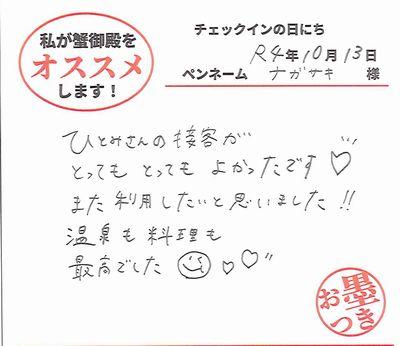 私が蟹御殿を
オススメ
します！
チェックインの日にち
R4年10月13日
ペンネーム ナガサキ 様
ひとみさんの接客が
とっても とっても よかったです♡
また利用したいと思いました!!
温泉も料理も
最高でした
お墨つき